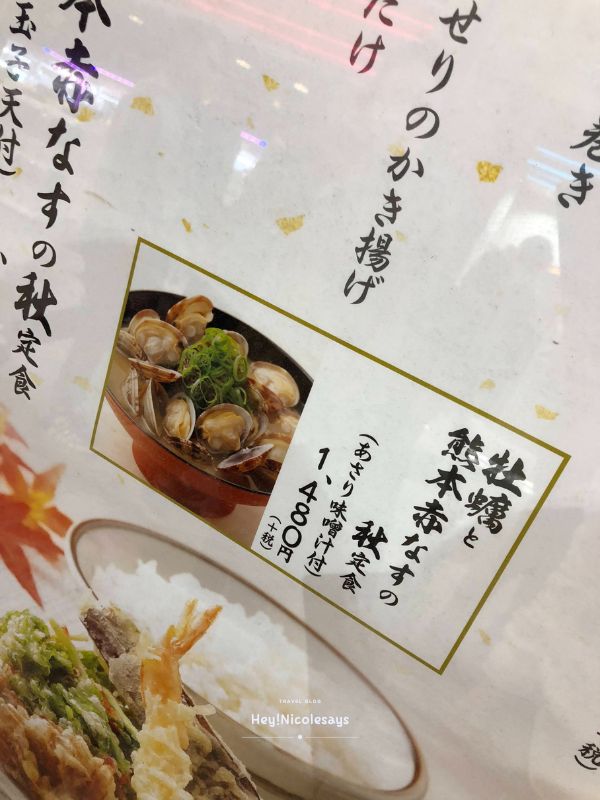 せりのかき揚げ
たけ
巻き
本赤なすの秋定食
玉子天付)
牡蠣と
熊本赤なすの
秋定食
(あさり味噌汁付)
1、480円
(+税)
税)
TRAVEL BLOG
Hey!Nicolesays